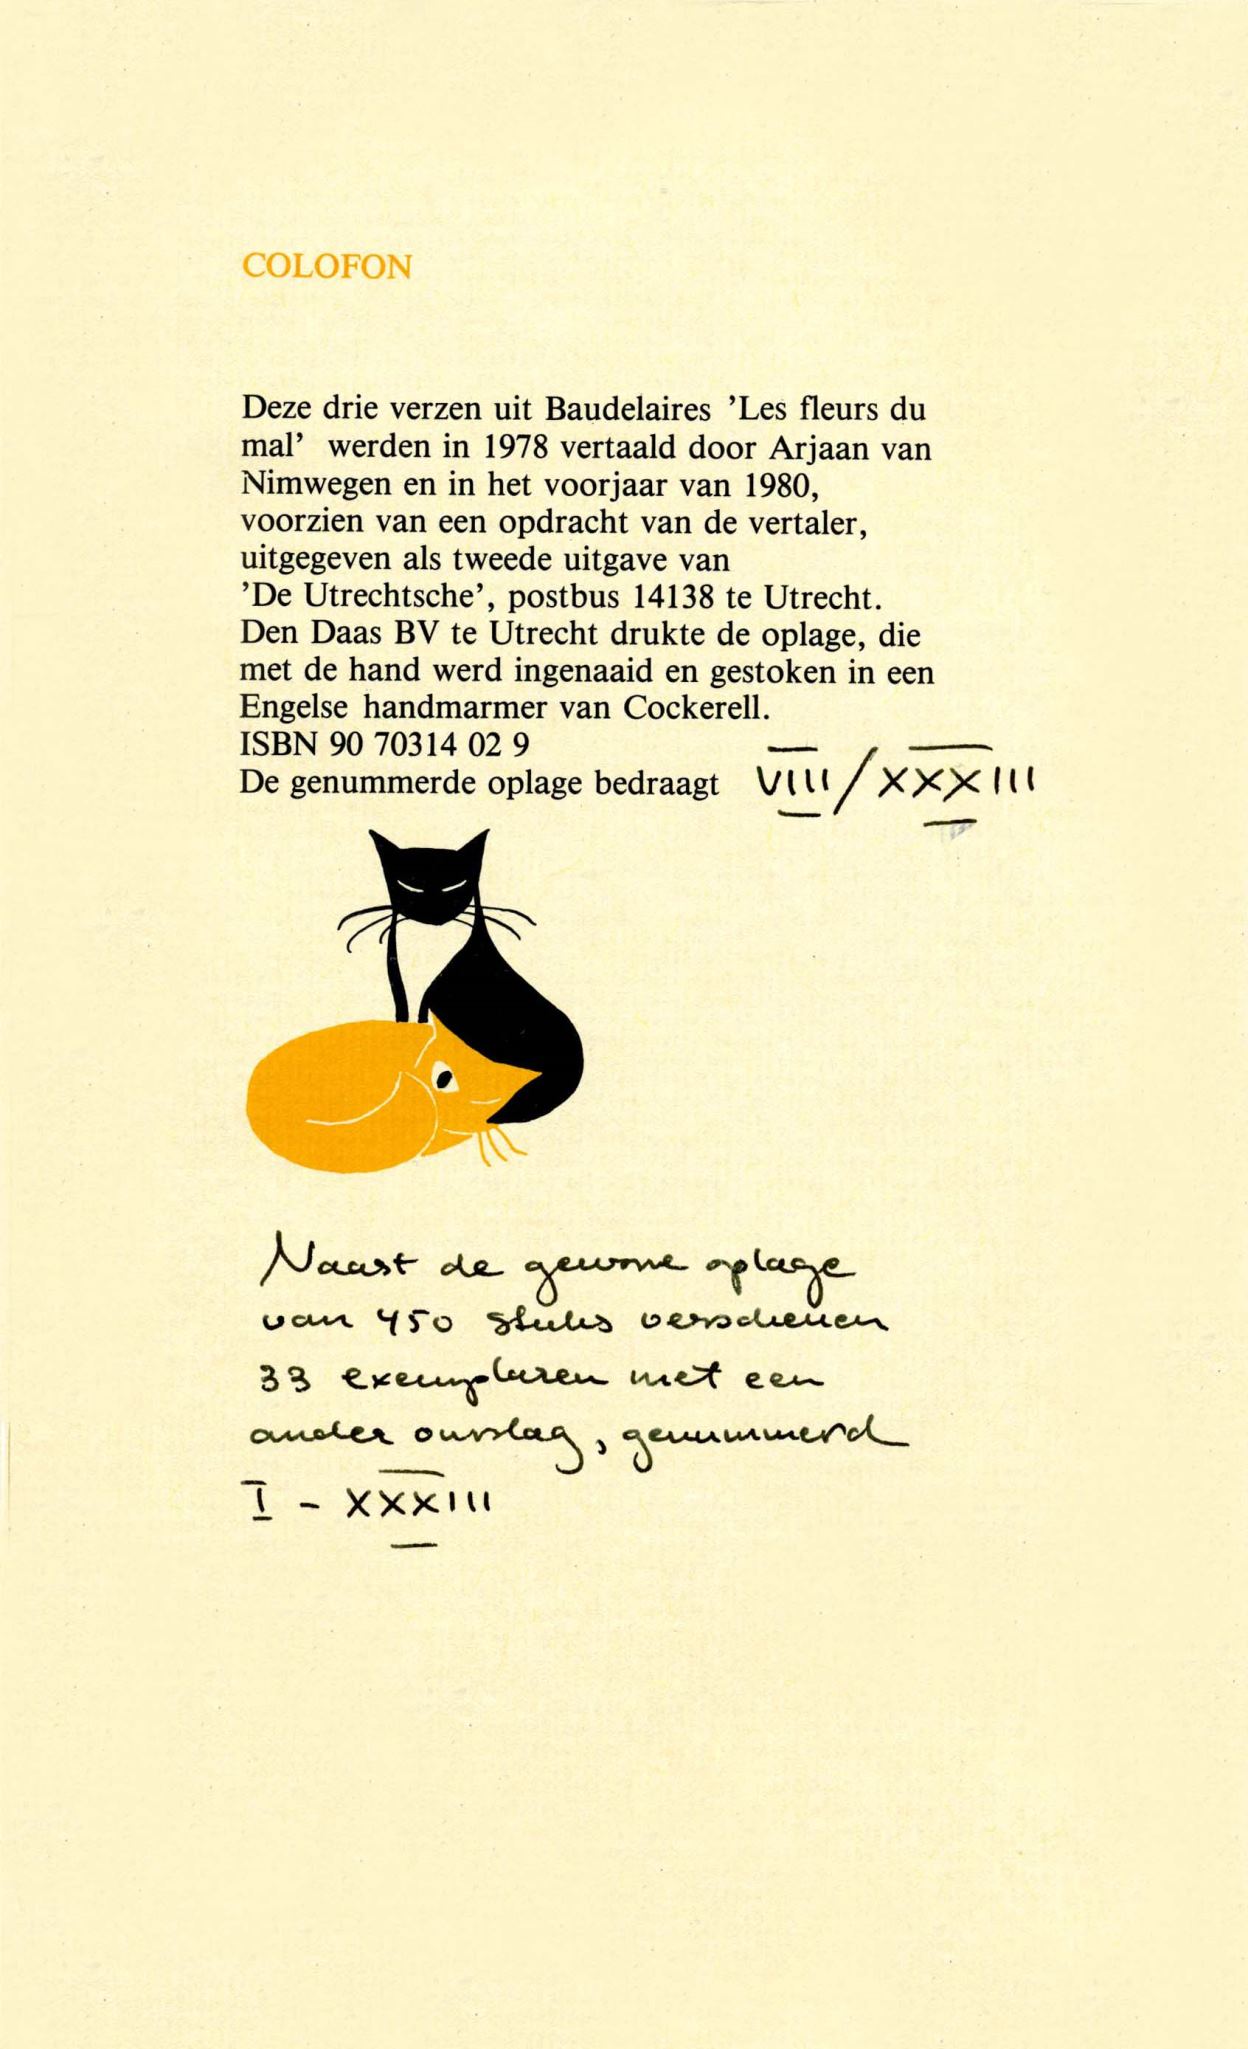 COLOFON
Deze drie verzen uit Baudelaires 'Les fleurs du
mal' werden in 1978 vertaald door Arjaan van
Nimwegen en in het voorjaar van 1980,
voorzien van een opdracht van de vertaler,
uitgegeven als tweede uitgave van
'De Utrechtsche', postbus 14138 te Utrecht.
Den Daas BV te Utrecht drukte de oplage, die
met de hand werd ingenaaid en gestoken in een
Engelse handmarmer van Cockerell.
ISBN 90 70314 02 9
De genummerde oplage bedraagt VIII/XXXIII
Naast de gewone oplage
van 450 stuks verschenen
33 exemplaren met een
ander omslag, genummerd
I - XXXIII